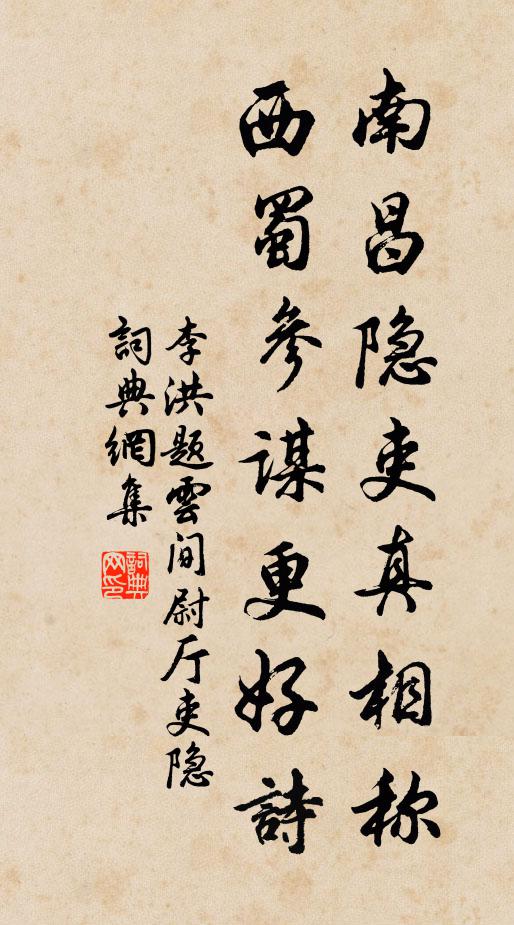 南昌隐吏真相称
西蜀參谋更好詩
李洪题雲间尉厅吏隐
詞典網集
詞典网印